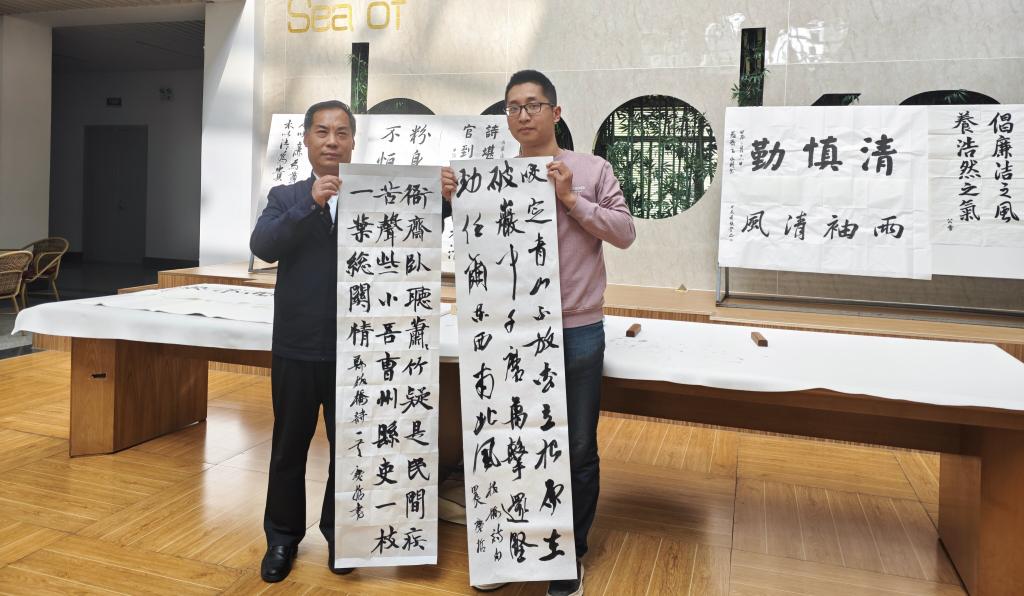 Sea of
books
衙齋臥聽蕭竹疑是民間疾
苦聲些小吾曹州縣吏一枝
一葉總關情
咬定青山不放松立根原在
破巖中千磨萬擊還堅
劲任爾东西南北風
板橋詩句
粉身
詩堪
官到
清慎勤
兩袖清風
倡廉洁之風
養浩然之氣